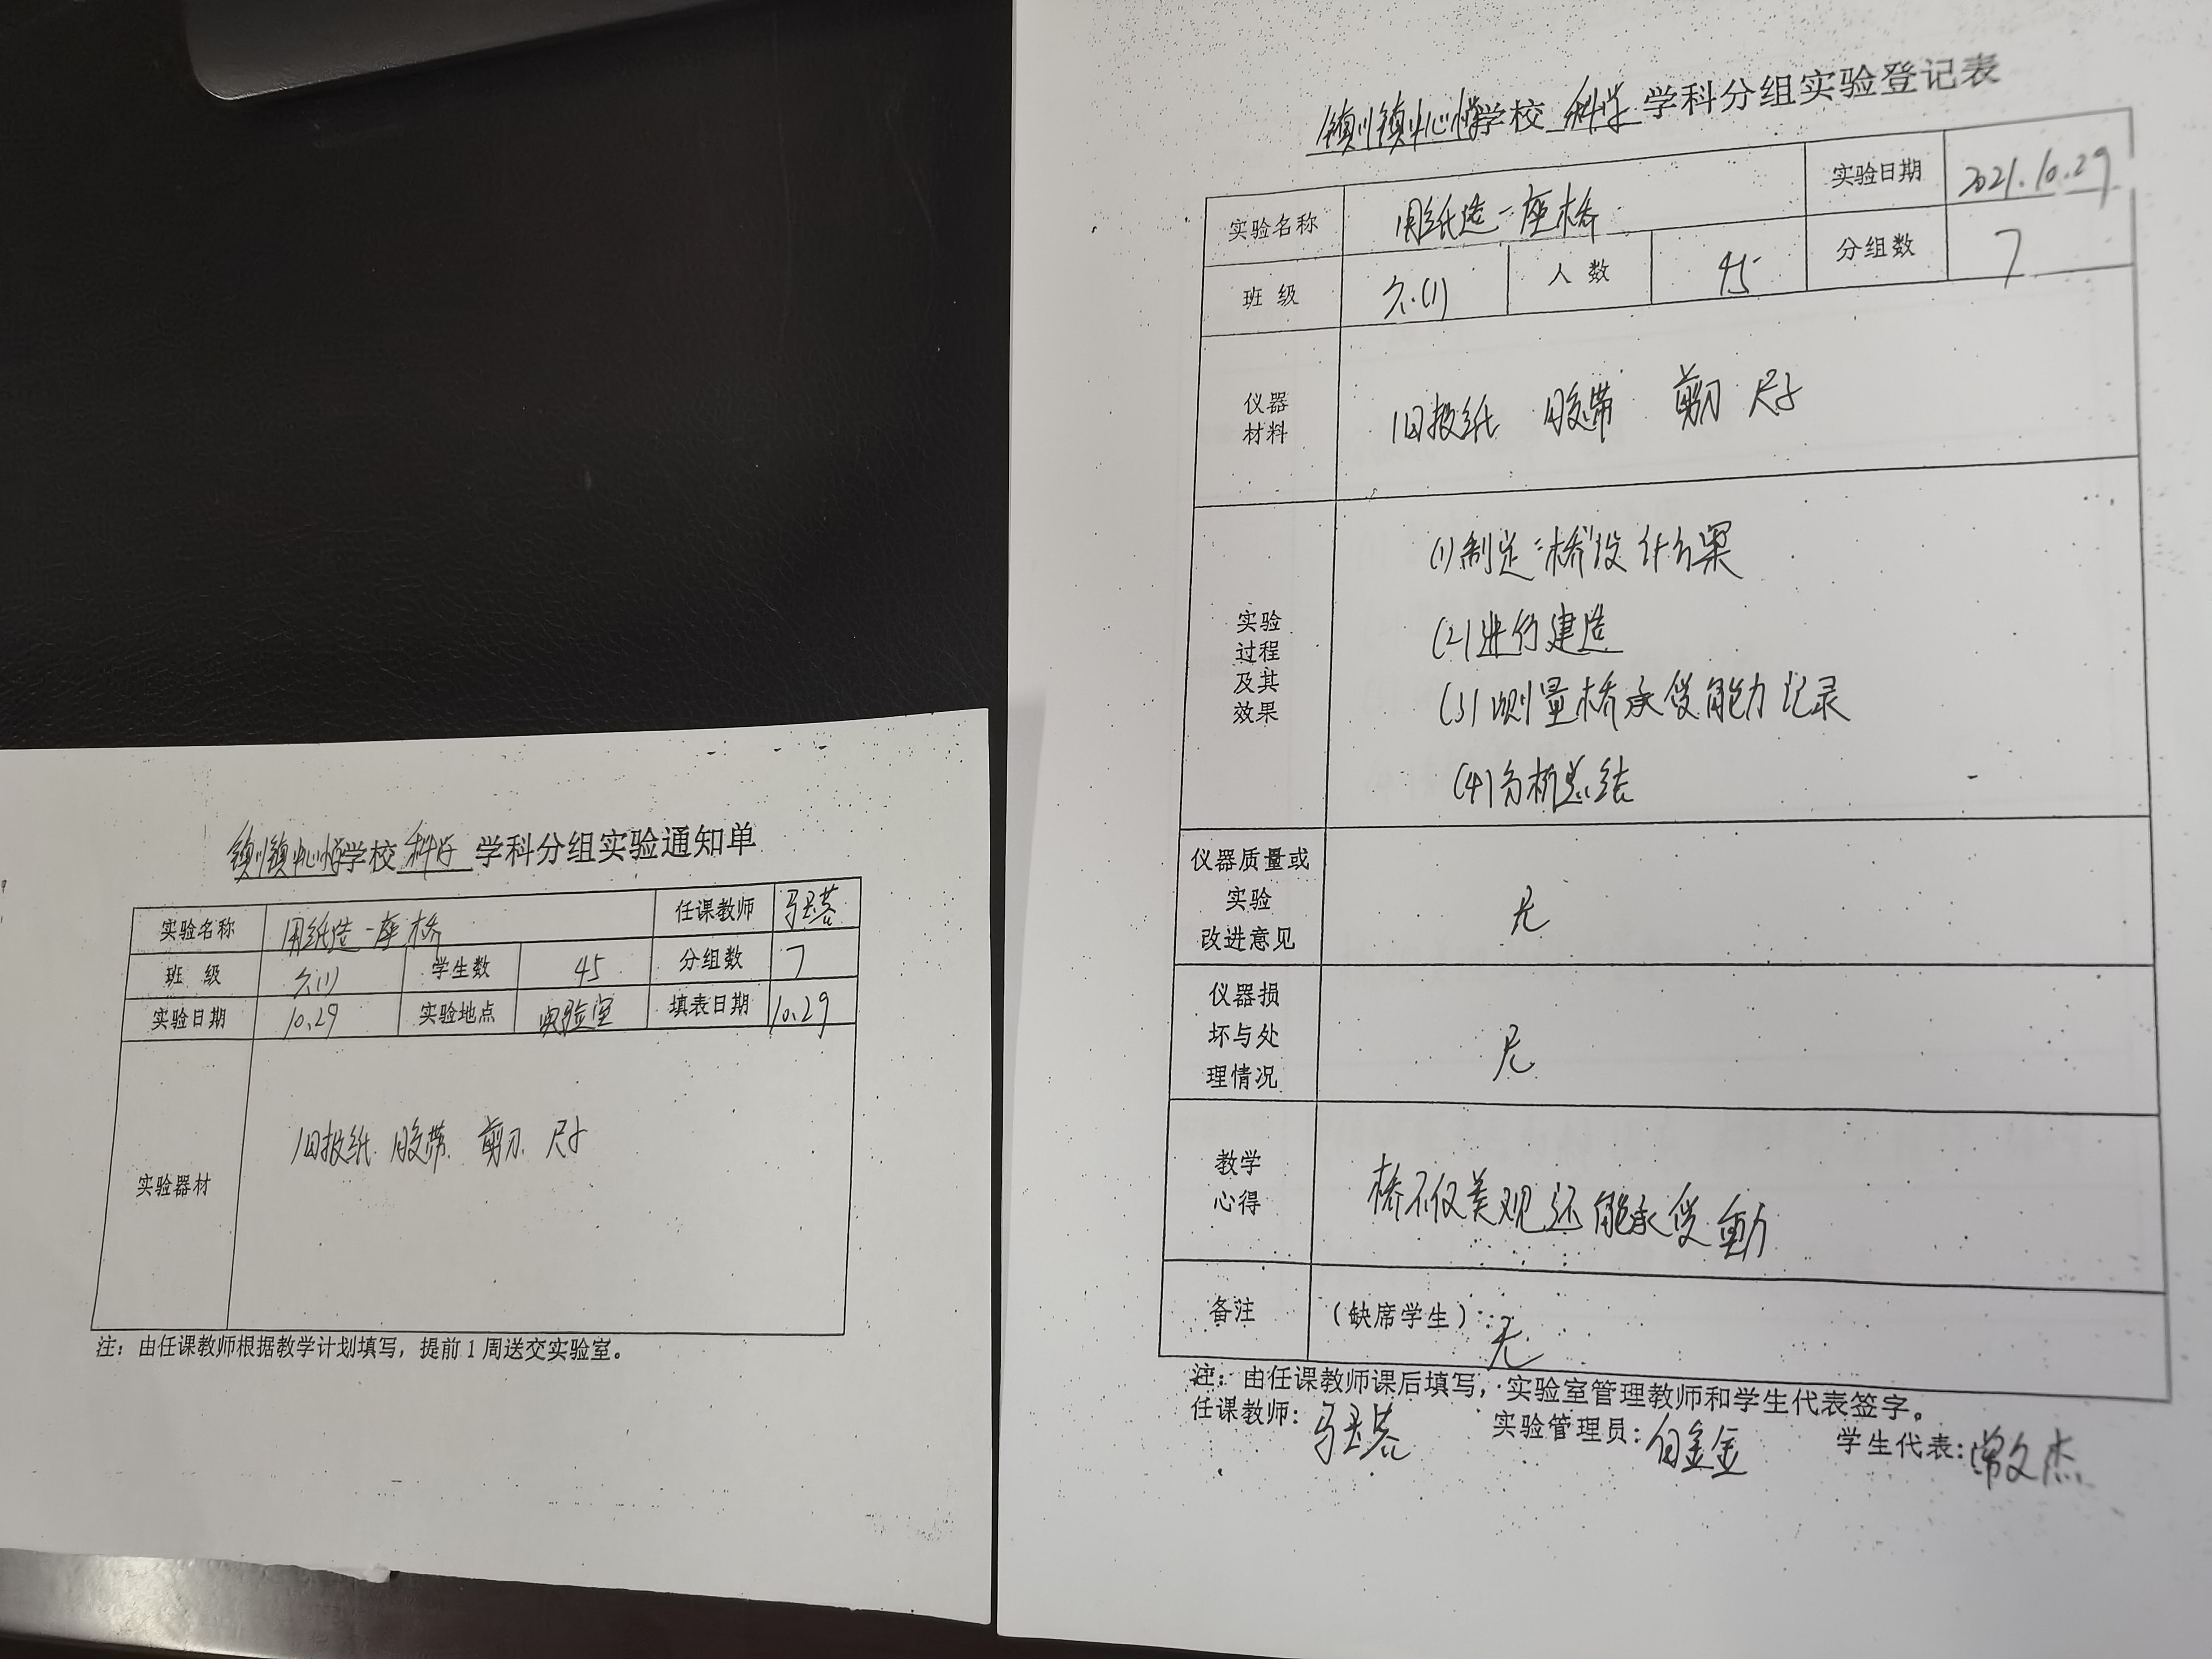 镇川镇中心小学学校 科学 学科分组实验通知单
实验名称 用纸造一座桥 任课教师
班 级 六(1) 学生数 45 分组数 7
实验日期 10.29 实验地点 实验室 填表日期 10.29
实验器材 旧报纸 胶带 剪刀 尺子
注：由任课教师根据教学计划填写，提前1周送交实验室。
镇川镇中心小学学校 科学 学科分组实验登记表
实验名称 用纸造一座桥 实验日期 2021.10.29
班 级 六(1) 人 数 45 分组数 7
仪器
材料
旧报纸 胶带 剪刀 尺子
实验
过程
及其
效果
(1)制定“桥”设计方案
(2)进行建造
(3)测量桥承受能力记录
(4)分析总结
仪器质量或
实验
改进意见
无
仪器损
坏与处
理情况
无
教学
心得
桥不仅美观还能承受重力
备注 （缺席学生）：无
注：由任课教师课后填写，实验室管理教师和学生代表签字。
任课教师： 实验管理员：白金金 学生代表：常文杰